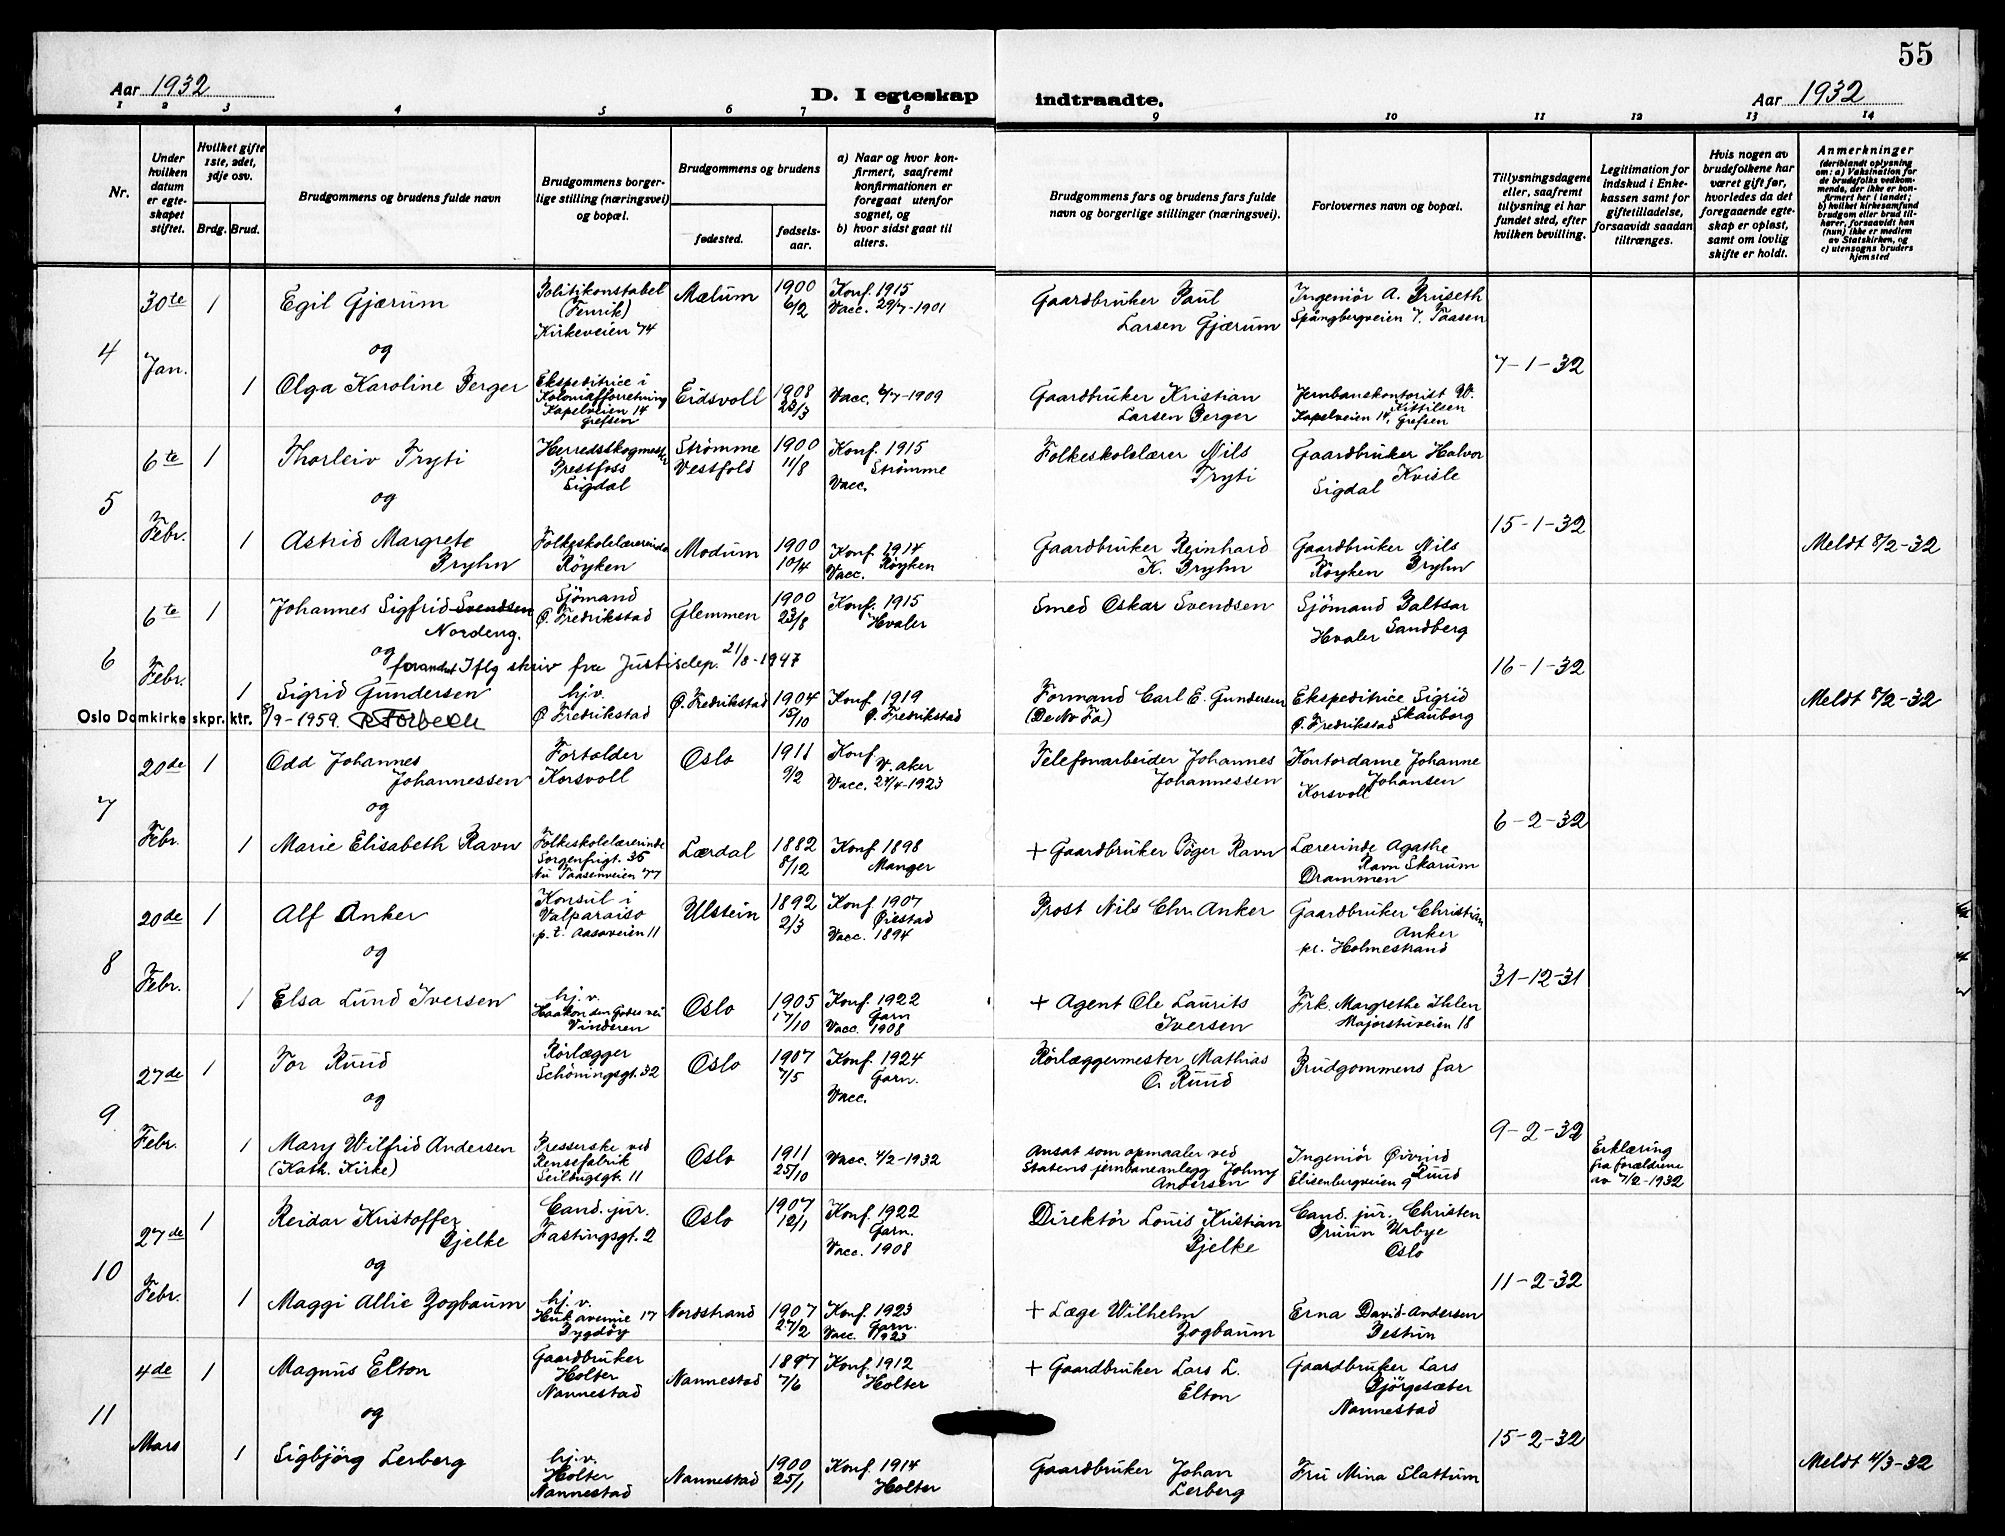 55
Aar 1932
D. I egteskap indtraadte.
Aar 1932
1 2 3 4 5 6 7 8 9 10 11 12 13 14
Nr.
Under hvilken datum er egteskapet stiftet.
Hvilket gifte 1ste, 2det, 3dje osv.
Brdg. Brud.
Brudgommens og brudens fulde navn
Brudgommens borgerlige stilling (næringsvei) og bopæl.
Brudgommens og brudens
fødested.
fødselsaar.
a) Naar og hvor konfirmert, saafremt konfirmationen er foregaat utenfor sognet, og
b) hvor sidst gaat til alters.
Brudgommens fars og brudens fars fulde navn og borgerlige stillinger (næringsvei).
Forlovernes navn og bopæl.
Tillysningsdagene eller, saafremt tillysning ei har fundet sted, efter hvilken bevilling.
Legitimation for indskud i Enkekassen samt for giftetilladelse, forsaavidt saadan tiltrænges.
Hvis nogen av brudefolkene har været gift før, hvorledes da det foregaaende egteskap er opløst, samt om lovlig skifte er holdt.
Anmerkninger
(deriblandt oplysning om: a) Vaksination for de brudefolks vedkommende, der ikke er konfirmert her i landet;
b) hvilket kirkesamfund brudgom eller brud tilhører, forsaavidt han (hun) ikke er medlem av Statskirken, og
c) utensogns bruders hjemsted
4
30te Jan.
1 Egil Gjærum
Politikonstabel (Fenrik) Kirkeveien 74
Mælum
1900 6/2
Konf. 1915
Vacc. 29/7-1901
Gaardbruker Paul Larsen Gjærum
Ingeniør A. Bruseth
Spångbergveien 7. Taasen
og
7-1-32
1 Olga Karoline Berger
Ekspeditrice i Kolonialforretning
Kapelveien 14 Grefsen
Eidsvoll
1908
Vacc. 6/7-1909
Gaardbruker Kristian Larsen Berger
Jernbanekontorist W. Kittilsen
Kapelveien 14, Grefsen
5
6te Febr.
1 Thorleiv Tryti
Herredsskogmester
Prestfoss Sigdal
Strømme Vestfold
1900 11/8
Konf. 1915 Strømme
Vacc.
Folkeskolelærer Nils Tryti
Gaardbruker Halvor Kvisle
Sigdal
og
15-1-32
1 Astrid Margrete Bryhn
Folkeskolelærerinde
Røyken
Modum
1900 10/4
Konf. 1914 Røyken
Vacc.
Gaardbruker Reinhard K. Bryhn
Gaardbruker Nils Bryhn
Røyken
Meldt 8/2-32
6
6te Febr.
1 Johannes Sigfrid Svendsen
Nordeng.
Sjömand
Ø. Fredrikstad
Glemmen
1900 23/8
Konf. 1915 Hvaler
Smed Oskar Svendsen
Sjömand Baltsar Sandberg
Hvaler
og
forandret Iflg skriv fra Justisdep. 21/8-1947
16-1-32
1 Sigrid Gundersen
hj.v.
Ø Fredrikstad
Ø. Fredrikstad
1904 15/10
Konf. 1919 Ø. Fredrikstad
Formand Carl E. Gundersen
(De No Fa)
Ekspeditrice Sigrid Skauborg
Ø. Fredrikstad
Meldt 8/2-32
Oslo Domkirke skpr. ktr. 8/9-1959.
7
20de Febr.
1 Odd Johannes Johannessen
Fortolder
Korsvoll
Oslo
1911 9/2
Konf V. aker
Vacc. 27/4-1923
Telefonarbeider Johannes Johannessen
Kontordame Johanne Johansen
Korsvoll
og
6-2-32
1 Marie Elisabeth Ravn
Folkeskolelærerinde
Sorgenfrigt. 35
Nu Taasenveien 77
Lærdal
1882 8/12
Konf. 1898 Manger
+ Gaardbruker Bøger Ravn
Lærerinde Agathe Ravn Skarum
Drammen
8
20de Febr.
1 Alf Anker
Konsul i Valparaiso
p. t. Aasaveien 11
Ulstein
1892 2/3
Konf. 1907 Øiestad
Vacc. 1894
Prost Nils Chr. Anker
Gaardbruker Christian Anker
pr. Holmestrand
og
31-12-31
1 Elsa Lund Iversen
hj. v.
Haakon den Godes vei
Vinderen
Oslo
1905 17/10
Konf. 1922 Garn
Vacc. 1908
+ Agent Ole Laurits Iversen
Frk. Margrethe Ihlen
Majorstuveien 18
9
27de Febr.
1 Tor Ruud
Rørlægger
Schøningsgt. 32
Oslo
1907 7/5
Konf. 1924 Garn.
Vacc.
Rørlæggermester Mathias O. Ruud
Brudgommens far
og
9-2-32
1 Mary Wilfrid Andersen
(Kath. Kirke)
Presserske ved Rensefabrik
Seilduksgt. 11
Oslo
1911 25/10
Vacc. 4/2-1932
Ansat som opmaaler ved Statens jernbaneanlegg Johny Andersen
Ingeniør Øivind Ruud
Elisenbergveien 9
Erklæring fra forældrene av 7/2-1932
10
27de Febr.
1 Reidar Kristoffer Bjelke
Cand. jur.
Fastingsgt. 2
Oslo
1907 12/1
Konf. 1922 Garn.
Vacc. 1908
Direktör Louis Kristian Bjelke
Cand. jur. Christen Bruun Urbye
Oslo
og
11-2-32
1 Maggi Allie Zogbaum
hj. v.
Huk avenue 17
Bygdöy
Nordstrand
1907 27/2
Konf. 1923 Garn.
Vacc. 1923
+ Læge Wilhelm Zogbaum
Erna David-Andersen
Bestun
11
4de Mars
1 Magnus Elton
Gaardbruker
Holter
Nannestad
Nannestad
1897 7/6
Konf. 1912 Holter
+ Gaardbruker Lars L. Elton
Gaardbruker Lars Bjørgesæter
Nannestad
og
15-2-32
1 Sigbjörg Lerberg
hj.v.
Holter
Nannestad
Nannestad
1900 25/1
Konf. 1914 Holter
Gaardbruker Johan Lerberg
Fru Mina Slattum
Meldt 4/3-32